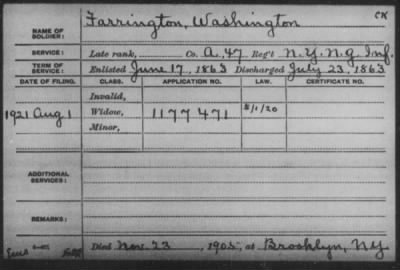 NAME OF SOLDIER: Farrington, Washington CK
SERVICE: Late rank, Co. A, 47 Reg't N.Y.N.G. Inf.
TERM OF SERVICE: Enlisted June 17, 1863 Discharged July 23, 1863
DATE OF FILING. CLASS. APPLICATION NO. LAW. CERTIFICATE NO.
Invalid,
1921 Aug 1 Widow, 1177471 5/1/20
Minor,
ADDITIONAL SERVICES:
REMARKS:
Died Nov. 23, 1905, at Brooklyn, N.Y.